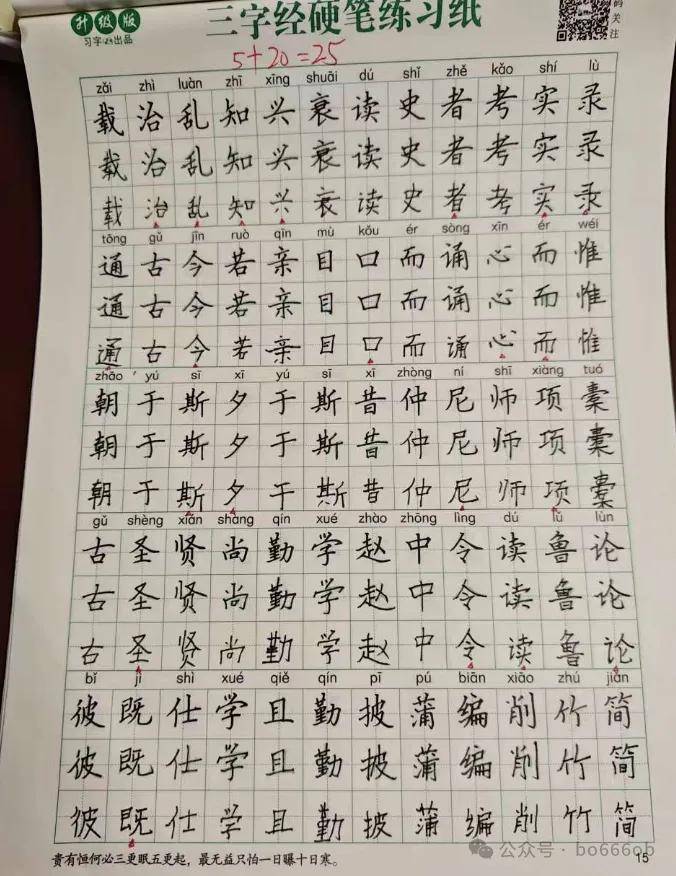 升级版
习字 出品
三字经硬笔练习纸
码关注
5+20=25
zǎi zhì luàn zhī xīng shuāi dú shǐ zhě kǎo shí lù
载治乱知兴衰读史者考实录
载治乱知兴衰读史者考实录
载治乱知兴衰读史者考实录
tōng gǔ jīn ruò qīn mù kǒu ér sòng xīn ér wéi
通古今若亲目口而诵心而惟
通古今若亲目口而诵心而惟
通古今若亲目口而诵心而惟
zhāo yú sī xī yú sī xī zhòng ní shī xiàng tuó
朝于斯夕于斯昔仲尼师项橐
朝于斯夕于斯昔仲尼师项橐
朝于斯夕于斯昔仲尼师项橐
gǔ shèng xián shàng qín xué zhào zhōng lìng dú lǔ lún
古圣贤尚勤学赵中令读鲁论
古圣贤尚勤学赵中令读鲁论
古圣贤尚勤学赵中令读鲁论
bǐ jì shì xué qiě qín pī pú biān xiāo zhú jiǎn
彼既仕学且勤披蒲编削竹简
彼既仕学且勤披蒲编削竹简
彼既仕学且勤披蒲编削竹简
贵有恒何必三更眠五更起，最无益只怕一日曝十日寒。
15
公众号·bo666ob